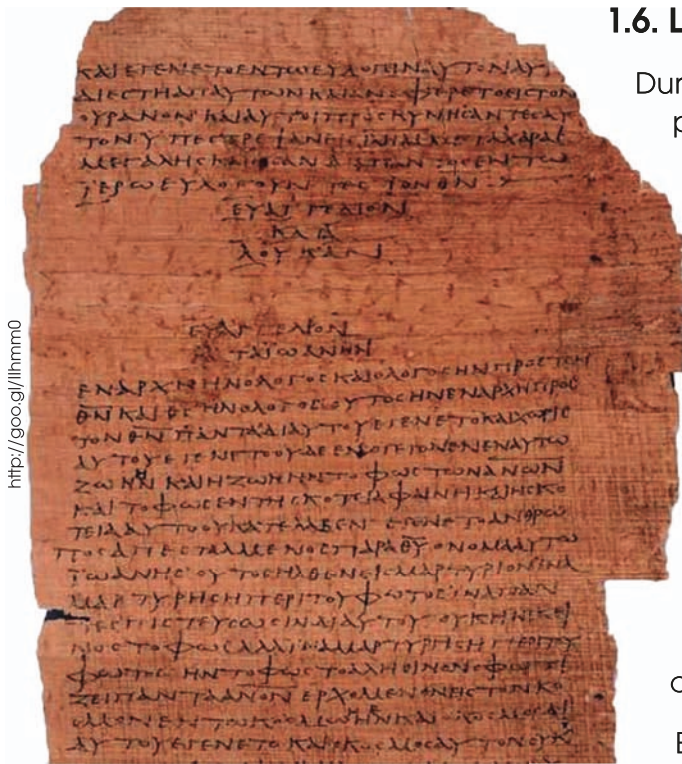 1.6. L
Dur
p
ΚΑΙΕΓΕΝΕΤΟΕΝΤΩΕΥΛΟΓΙΝΑΥΤΟΝΑΥ
ΔΙΕϹΤΗΑΠΑΥΤΩΝΚΑΙΑΝΕΦΕΡΕΤΟΕΙϹΤΟΝ
ΟΥΡΑΝΟΝΚΑΙΑΥΤΟΙΠΡΟϹΚΥΝΗϹΑΝΤΕϹΑΥ
ΤΟΝΥΠΕϹΤΡΕΨΑΝΕΙϹ
ΜΕΓΑΛΗϹΚΑΙΗϹΑΝ ΕΝΤΩ
ΪΕΡΩΕΥΛΟΓΟΥΝΤΕϹΤΟΝΘΝ
ΕΥΑΓΓΕΛΙΟΝ
ΚΑΤΑ
ΛΟΥΚΑΝ
ΕΥΑΓΓΕΛΙΟΝ
ΚΑΤΑΪΩΑΝΗΝ
ΕΝΑΡΧΗΗΝΟΛΟΓΟϹΚΑΙΟΛΟΓΟϹΗΝΠΡΟϹΤΟΝ
ΘΝΚΑΙΘϹΗΝΟΛΟΓΟϹΟΥΤΟϹΗΝΕΝΑΡΧΗΠΡΟϹ
ΤΟΝΘΝΠΑΝΤΑΔΙΑΥΤΟΥΕΓΕΝΕΤΟΚΑΙΧΩΡΙϹ
ΑΥΤΟΥΕΓΕΝΕΤΟΟΥΔΕΕΝΟΓΕΓΟΝΕΝΕΝΑΥΤΩ
ΖΩΗΗΝΚΑΙΗΖΩΗΗΝΤΟΦΩϹΤΩΝΑΝΩΝ
ΚΑΙΤΟΦΩϹΕΝΤΗϹΚΟΤΕΙΑΦΑΙΝΕΙΚΑΙΗϹΚΟ
ΤΕΙΑΑΥΤΟΟΥΚΑΤΕΛΑΒΕΝΕΓΕΝΕΤΟΑΝΘΡΩ
ΠΟϹΑΠΕϹΤΑΛΜΕΝΟϹΠΑΡΑΘΥΟΝΟΜΑΑΥΤΩ
ΪΩΑΝΗϹΟΥΤΟϹΗΛΘΕΝΕΙϹΜΑΡΤΥΡΙΟΝΙΝΑ
ΜΑΡΤΥΡΗϹΗΠΕΡΙΤΟΥΦΩΤΟϹΙΝΑΠΑΝ
ΤΕϹΠΙϹΤΕΥϹΩϹΙΝΔΙΑΥΤΟΥΟΥΚΗΝΕΚΕΙ
ΝΟϹΤΟΦΩϹΑΛΛΙΝΑΜΑΡΤΥΡΗϹΗΠΕΡΙΤΟΥ
ΦΩΤΟϹΗΝΤΟΦΩϹΤΟΑΛΗΘΙΝΟΝΟΦΩΤΙ
ΖΕΙΠΑΝΤΑΑΝΟΝΕΡΧΟΜΕΝΟΝΕΙϹΤΟΝΚΟ
ϹΜΟΝΕΝΤΩΚΟϹΜΩΗΝΚΑΙΟΚΟϹΜΟϹΔΙ
ΑΥΤΟΥΕΓΕΝΕΤΟΚΑΙΟΚΟϹΜΟϹΑΥΤΟΝΟΥΚ
http://goo.gl/llhmm0
c
E